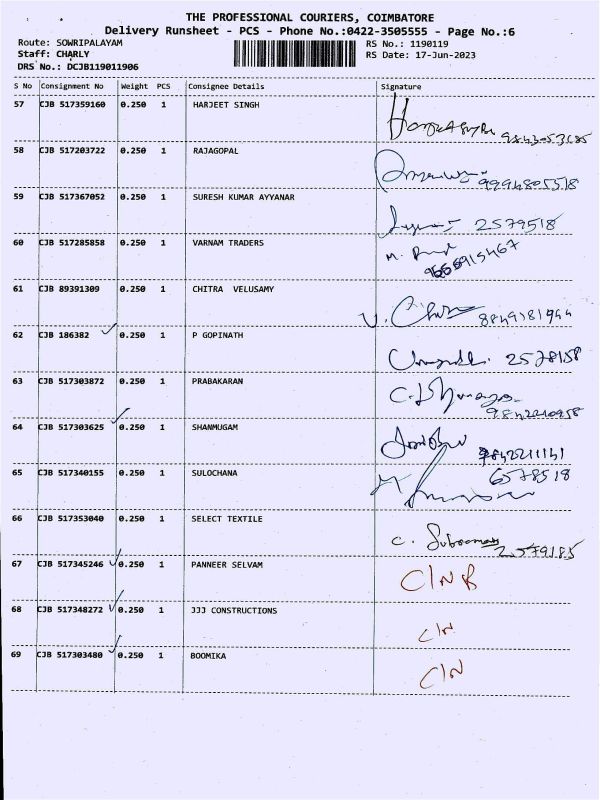 THE PROFESSIONAL COURIERS, COIMBATORE
Delivery Runsheet - PCS - Phone No.:0422-3505555 - Page No.:6
Route: SOWRIPALAYAM RS No.: 1190119
Staff: CHARLY RS Date: 17-Jun-2023
DRS No.: DCJB119011906
S No Consignment No Weight PCS Consignee Details Signature
57 CJB 517359160 0.250 1 HARJEET SINGH
58 CJB 517203722 0.250 1 RAJAGOPAL
9994805518
59 CJB 517367052 0.250 1 SURESH KUMAR AYYANAR
2579518
60 CJB 517285858 0.250 1 VARNAM TRADERS
61 CJB 89391309 0.250 1 CHITRA VELUSAMY
62 CJB 186382 0.250 1 P GOPINATH
2578158
63 CJB 517303872 0.250 1 PRABAKARAN
64 CJB 517303625 0.250 1 SHANMUGAM
65 CJB 517340155 0.250 1 SULOCHANA
6578518
66 CJB 517353040 0.250 1 SELECT TEXTILE
2579185
67 CJB 517345246 0.250 1 PANNEER SELVAM
68 CJB 517348272 0.250 1 JJJ CONSTRUCTIONS
C/N
69 CJB 517303480 0.250 1 BOOMIKA
C/N